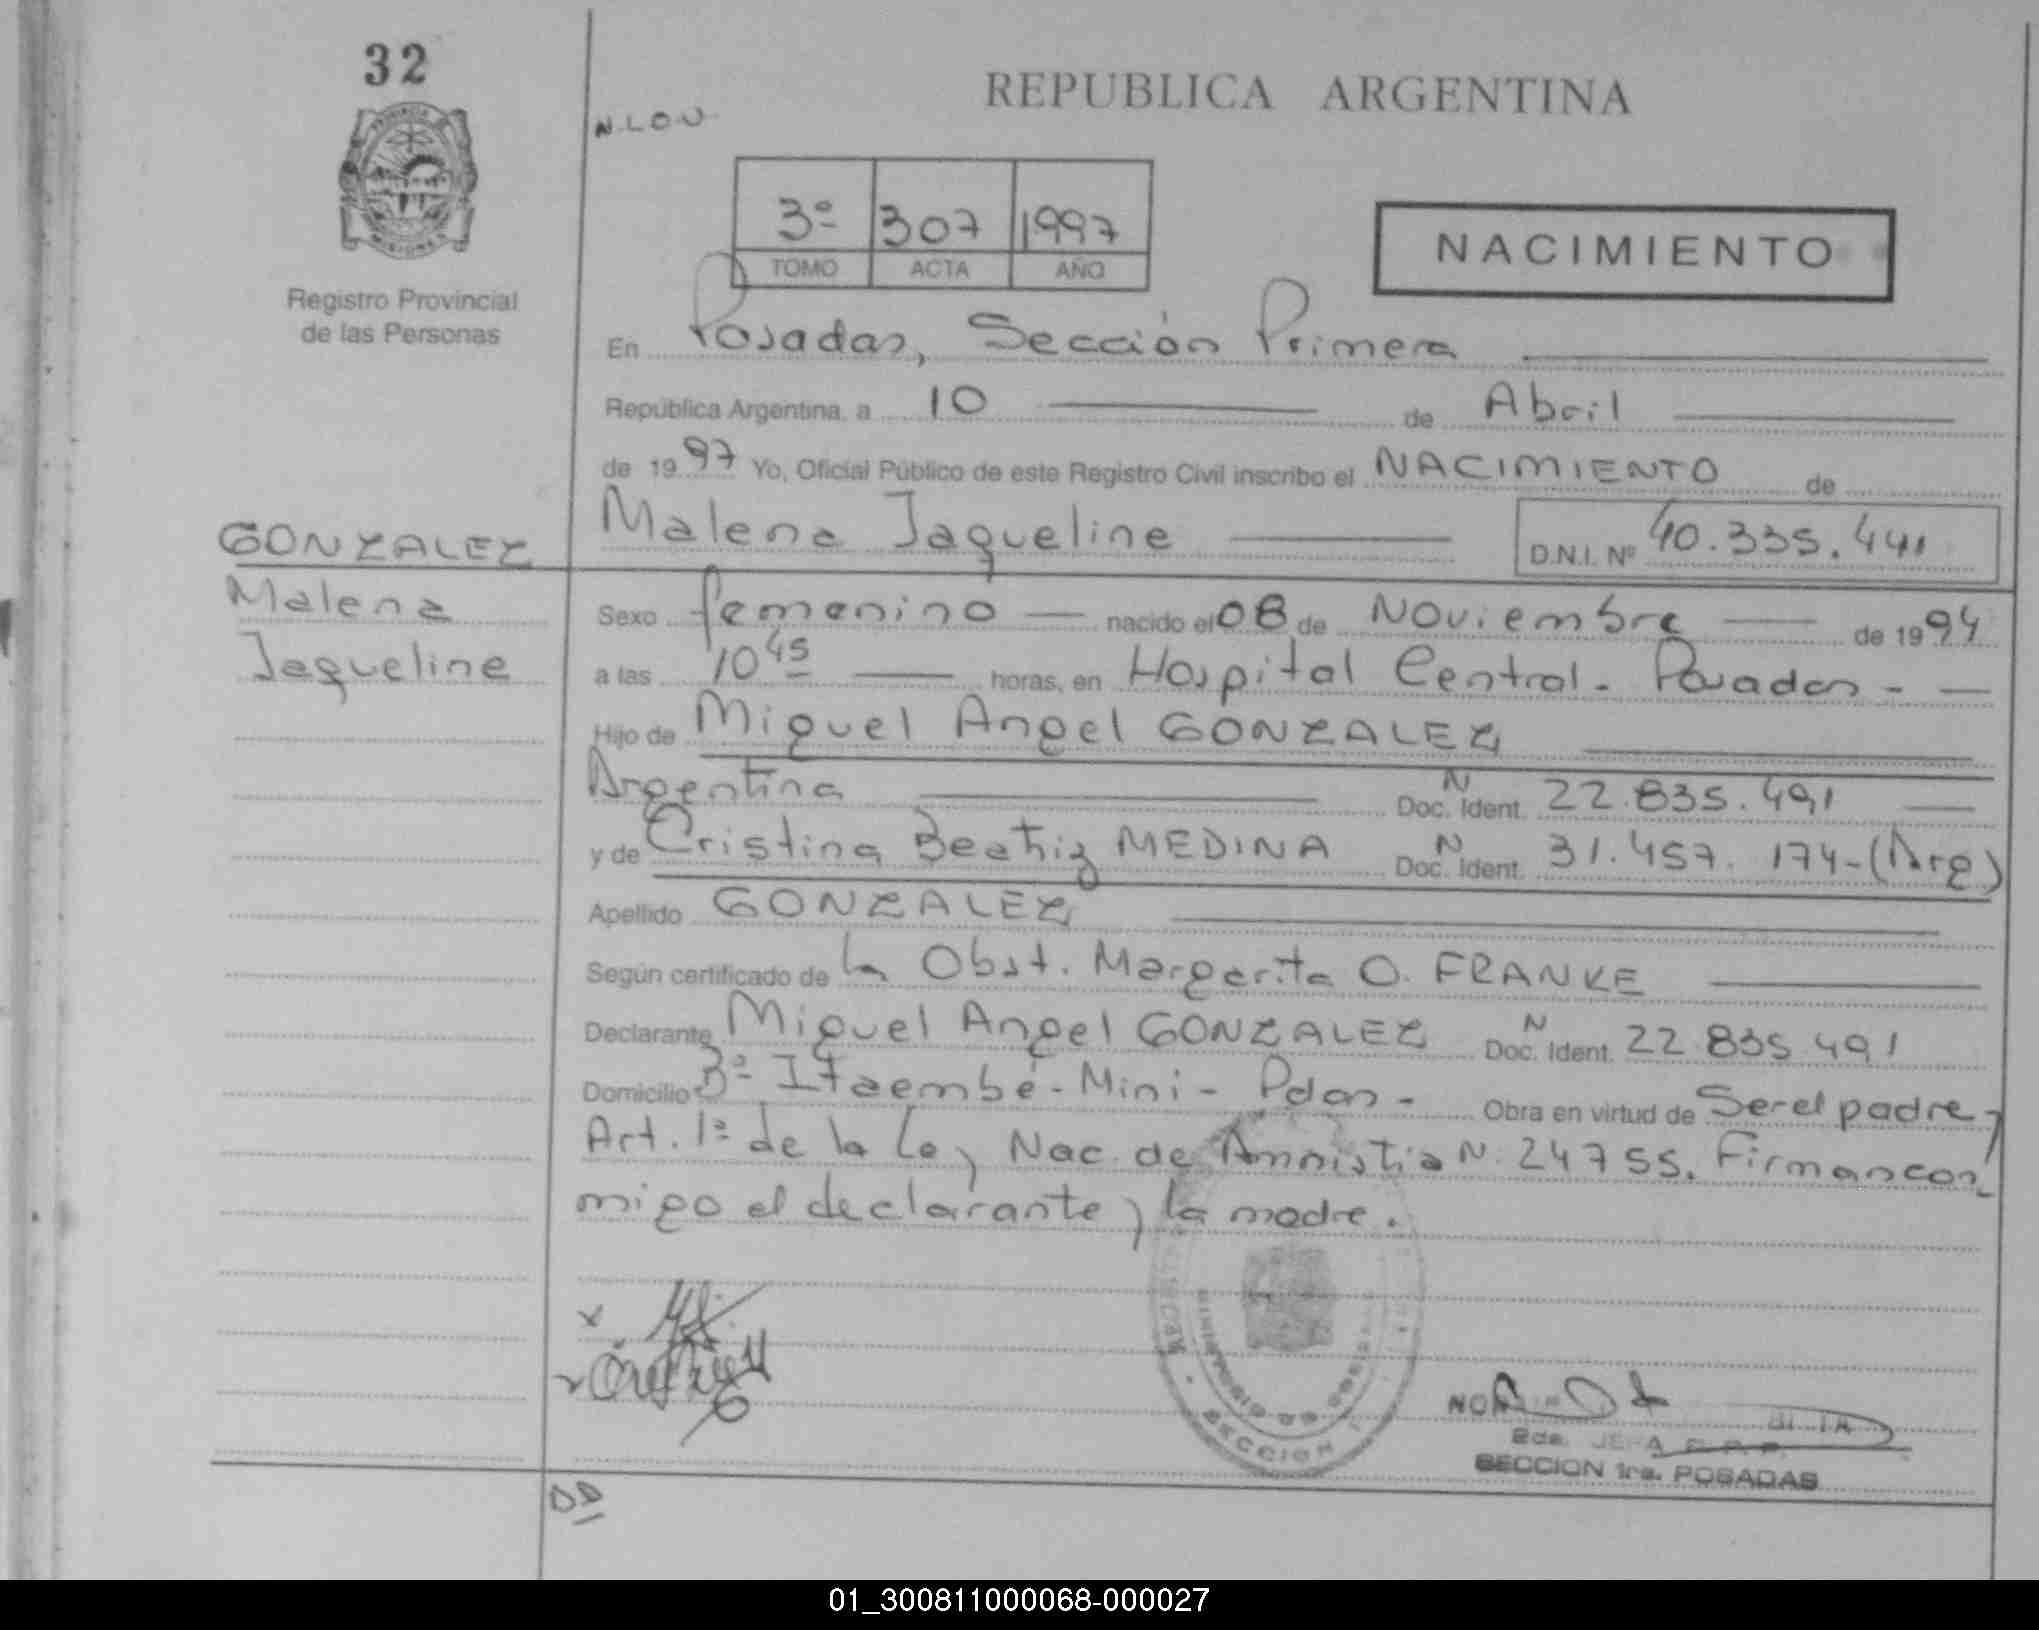 32
REPUBLICA ARGENTINA
N.L.O.U
3º 307 1997
TOMO ACTA AÑO
NACIMIENTO
PROVINCIA
MISIONES
Registro Provincial
de las Personas
En Posadas, Sección Primera
República Argentina, a 10 de Abril
de 1997 Yo, Oficial Público de este Registro Civil inscribo el NACIMIENTO de
GONZALEZ
Malena Jaqueline D.N.I. Nº 40.335.441
Malena
Jaqueline
Sexo femenino nacido el 08 de Noviembre de 1994
a las 10 45 horas, en Hospital Central - Posadas -
Hijo de Miguel Angel GONZALEZ
Argentina N Doc. Ident. 22.835.491
y de Cristina Beatriz MEDINA N Doc. Ident. 31.457.174-(Arg)
Apellido GONZALEZ
Según certificado de la Obst. Margarita O. FRANKE
Declarante Miguel Angel GONZALEZ N Doc. Ident. 22.835.491
Domicilio 3º Itaembé-Mini - Pdas - Obra en virtud de Ser el padre y
Art. 1º de la Ley Nac. de Amnistia N. 24755. Firman con
migo el declarante y la madre.
MINISTERIO DE GOBIERNO
SECCION 1
SECCION 1ra. POSADAS
01_300811000068-000027